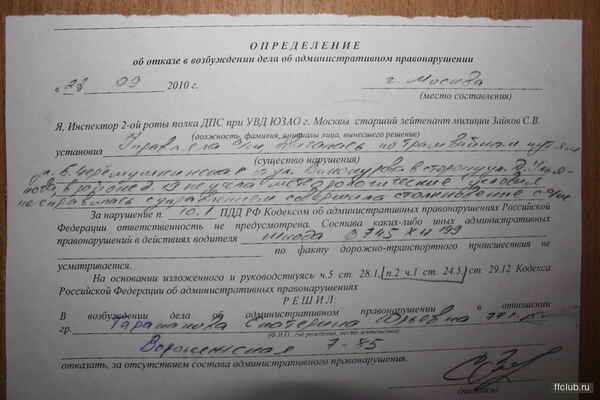 ОПРЕДЕЛЕНИЕ
об отказе в возбуждении дела об административном правонарушении
« 28 » 09 2010 г. г. Москва
(место составления)
Я, Инспектор 2-ой роты полка ДПС при УВД ЮЗАО г. Москвы старший лейтенант милиции Зайков С.В.
(должность, фамилия, инициалы лица, вынесшего решение)
установил Управляя а/м двигаясь по трамвайным путям
(существо нарушения)
ул. Б. Черемушкинская от ул. Винокурова в сторону ул.
в районе д. 19 не учла метеорологические условия
не справилась с управлением совершила столкновение с
За нарушение п. 10.1 ПДД РФ Кодексом об административных правонарушениях Российской
Федерации ответственность не предусмотрена. Состава каких-либо иных административных
правонарушений в действиях водителя Шкода 199
по факту дорожно-транспортного происшествия не
усматривается.
На основании изложенного и руководствуясь ч.5 ст. 28.1, п.2 ч.1 ст. 24.5, ст. 29.12 Кодекса
Российской Федерации об административных правонарушениях
РЕШИЛ
В возбуждении дела об административном правонарушении в отношении
гр. Екатерина Юрьевна
Воронежская 7-85
отказать, за отсутствием состава административного правонарушения.
(подпись)
ffclub.ru